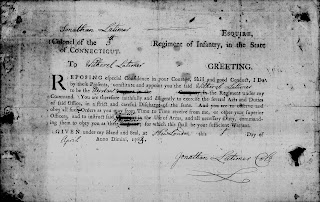 Jonathan Latimer ESQUIRE,
Colonel of the 3 Regiment of Infantry, in the State
of CONNECTICUT.
To Witherel Latimer GREETING.
REPOSING especial Confidence in your Courage, Skill and good Conduct, I Do
by these Presents, constitute and appoint you the said Witherel Latimer
to be the in the Regiment under my
Command: You are therefore faithfully and diligently to execute the several Acts and Duties
of said Office, in a strict and careful Discharge of the same. And you are to observe and
obey all such Orders as you may from Time to Time receive from me, or other your superior
Officers, and to instruct in the Use of Arms, and all necessary Duty, command-
ing them to obey you as, for which this shall be your sufficient Warrant.
GIVEN under my Hand and Seal, at New London this Day of
April Anno Domini, 179
Jonathan Latimer Coll